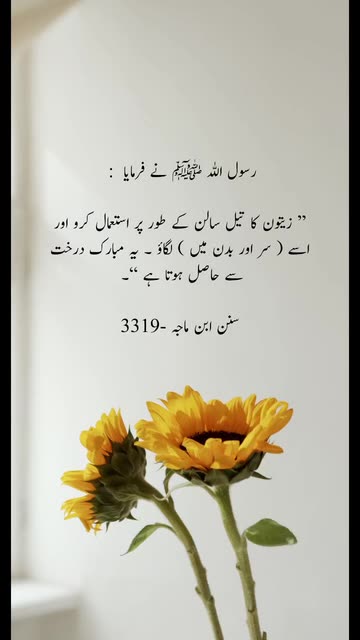 رسول اللہ ﷺ نے فرمایا :
” زیتون کا تیل سالن کے طور پر استعمال کرو اور
اسے ( سر اور بدن میں ) لگاؤ ۔ یہ مبارک درخت
سے حاصل ہوتا ہے “۔
سنن ابن ماجہ -3319